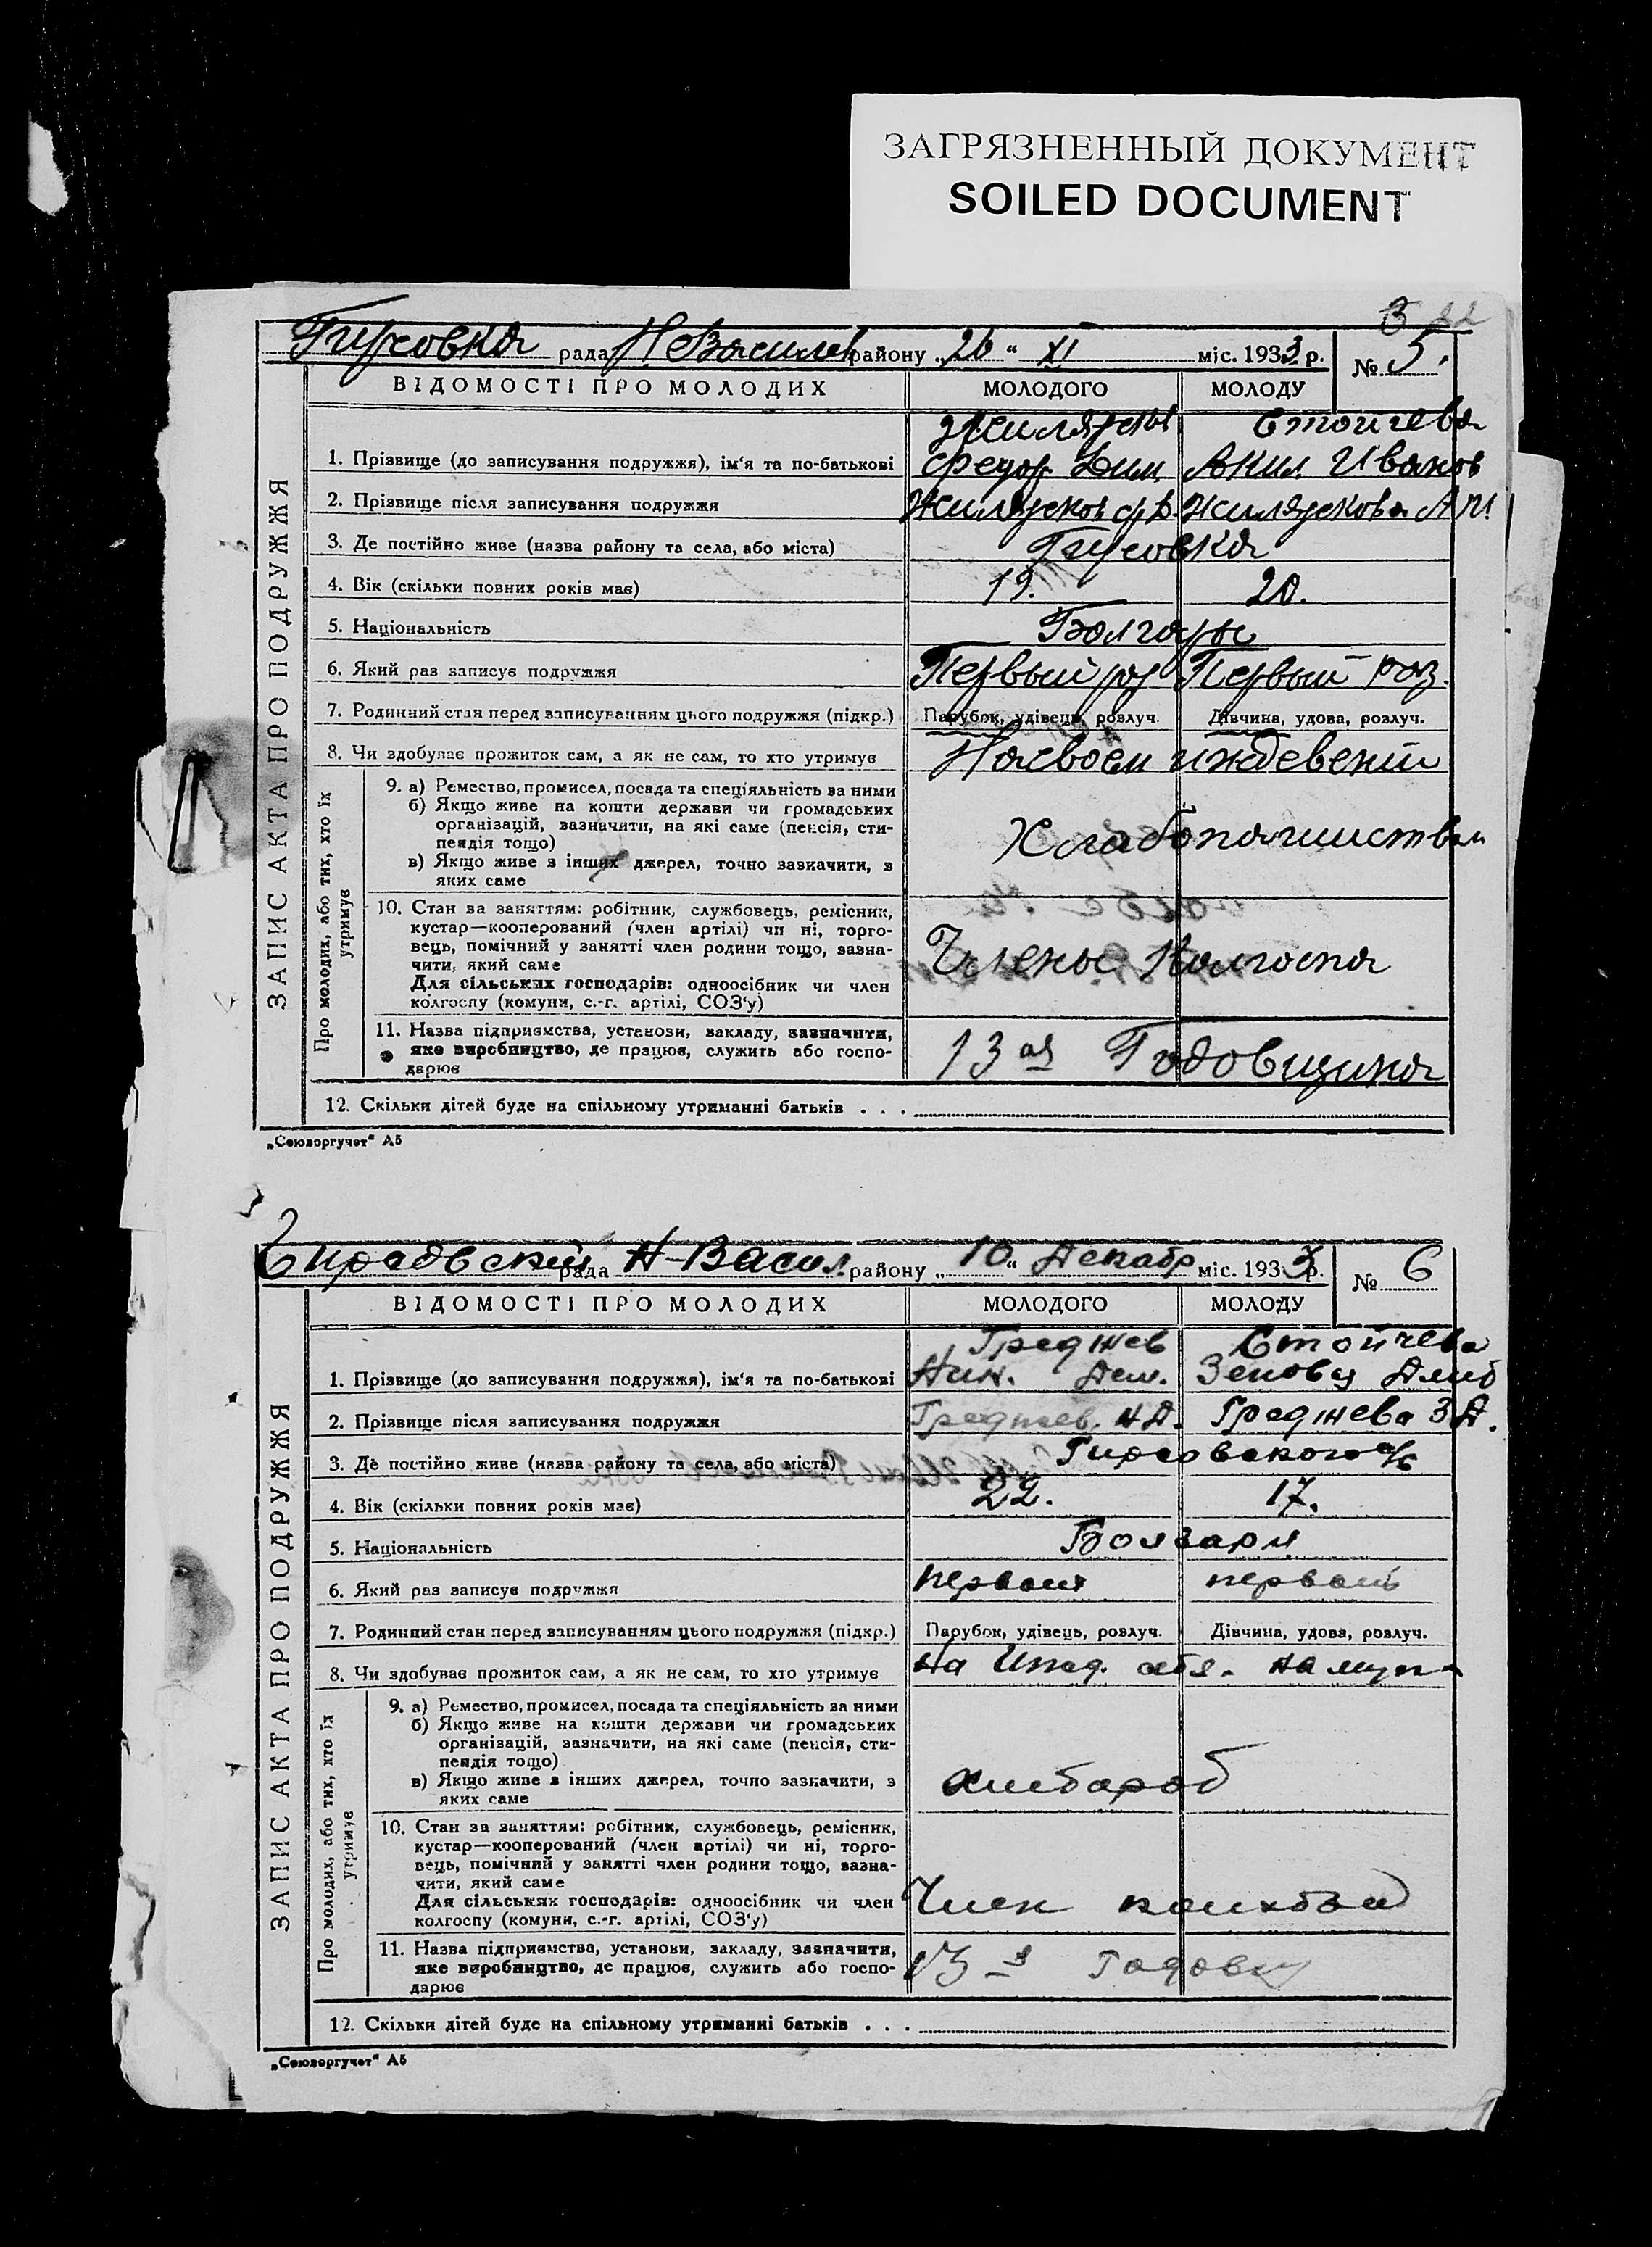 ЗАГРЯЗНЕННЫЙ ДОКУМЕНТ
SOILED DOCUMENT
22
Гирсовка рада Н Василев району „26“ XI міс. 1933 р. № 5.
ЗАПИС АКТА ПРО ПОДРУЖЖЯ
ВІДОМОСТІ ПРО МОЛОДИХ МОЛОДОГО МОЛОДУ
Жилясков Стоичева
1. Прізвище (до записування подружжя), ім'я та по-батькові Федор Дим. Акил Иванов
2. Прізвище після записування подружжя Жилясков Ф Д Жиляскова А И
3. Де постійно живе (назва району та села, або міста) Гирсовка
4. Вік (скільки повних років має) 19. 20.
5. Національність Болгары
6. Який раз записує подружжя Первый раз Первый раз.
7. Родинний стан перед записуванням цього подружжя (підкр.) Парубок, удівець, розлуч. Дівчина, удова, розлуч.
8. Чи здобуває прожиток сам, а як не сам, то хто утримує На своем иждевении
Про молодих, або тих, хто їх утримує
9. а) Ремество, промисел, посада та спеціяльність за ними
б) Якщо живе на кошти держави чи громадських
організацій, зазначити, на які саме (пенсія, сти-
пендія тощо)
в) Якщо живе з інших джерел, точно зазначити, з
яких саме
Хлабопашиством
10. Стан за заняттям: робітник, службовець, ремісник,
кустар—кооперований (член артілі) чи ні, торго-
вець, помічний у занятті член родини тощо, зазна-
чити, який саме
Для сільських господарів: одноосібник чи член
колгоспу (комуни, с.-г. артілі, СОЗ'у)
Члены Колгоспа
11. Назва підприємства, установи, закладу, зазначити,
яке виробництво, де працює, служить або госпо-
дарює
13ая Годовщина
12. Скільки дітей буде на спільному утриманні батьків . . .
„Союзоргучет“ А5
Гирсовский рада Н-Васил. району „10“ Декабр міс. 1933 р. № 6
ЗАПИС АКТА ПРО ПОДРУЖЖЯ
ВІДОМОСТІ ПРО МОЛОДИХ МОЛОДОГО МОЛОДУ
Греджев Стойчева
1. Прізвище (до записування подружжя), ім'я та по-батькові Ник. Дем. Зеновя
2. Прізвище після записування подружжя Греджев. Н Д. Греджева З Д.
3. Де постійно живе (назва району та села, або міста) Гирсовского с/с
4. Вік (скільки повних років має) 22. 17.
5. Національність Болгари
6. Який раз записує подружжя первый первый
7. Родинний стан перед записуванням цього подружжя (підкр.) Парубок, удівець, розлуч. Дівчина, удова, розлуч.
8. Чи здобуває прожиток сам, а як не сам, то хто утримує На Ижд. на мужа
Про молодих, або тих, хто їх утримує
9. а) Ремество, промисел, посада та спеціяльність за ними
б) Якщо живе на кошти держави чи громадських
організацій, зазначити, на які саме (пенсія, сти-
пендія тощо)
в) Якщо живе з інших джерел, точно зазначити, з
яких саме
хлибароб
10. Стан за заняттям: робітник, службовець, ремісник,
кустар—кооперований (член артілі) чи ні, торго-
вець, помічний у занятті член родини тощо, зазна-
чити, який саме
Для сільських господарів: одноосібник чи член
колгоспу (комуни, с.-г. артілі, СОЗ'у)
Член
11. Назва підприємства, установи, закладу, зазначити,
яке виробництво, де працює, служить або госпо-
дарює
13-я Годовщ
12. Скільки дітей буде на спільному утриманні батьків . . .
„Союзоргучет“ А5